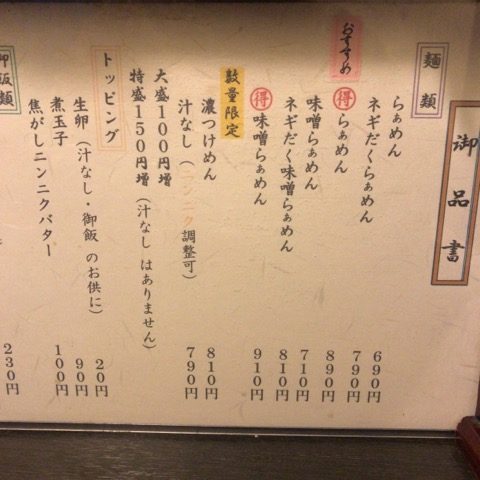 御品書
麺類
らぁめん 690円
ネギだくらぁめん 790円
おすすめ
得 らぁめん 890円
味噌らぁめん 710円
ネギだく味噌らぁめん 810円
得 味噌らぁめん 910円
数量限定
濃つけめん 810円
汁なし(ニンニク調整可) 790円
大盛100円増
特盛150円増(汁なし はありません)
トッピング
生卵(汁なし・御飯 のお供に) 20円
煮玉子 90円
焦がしニンニクバター 100円
御飯類
230円